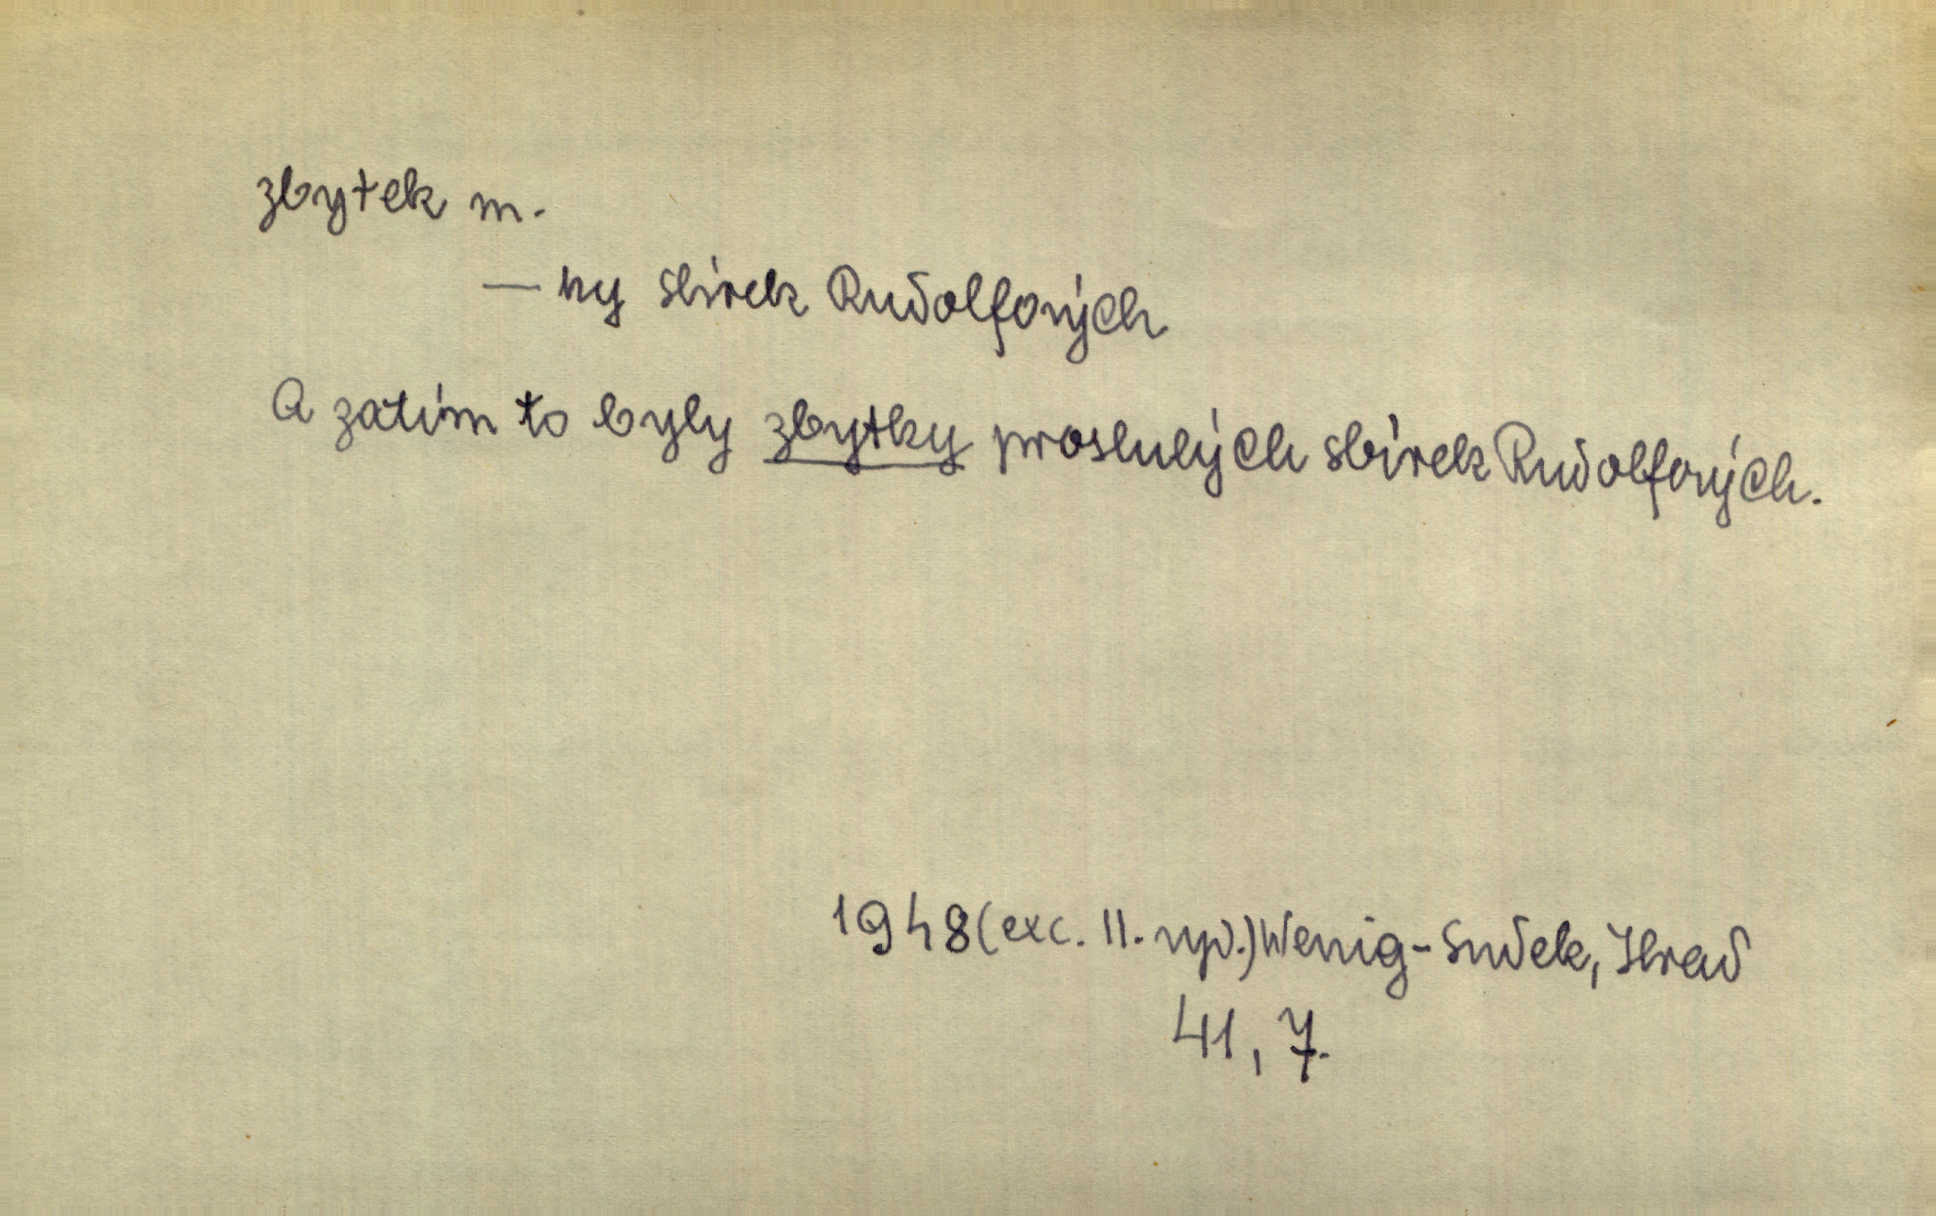 zbytek m.
— ky sbírek Rudolfových
A zatím to byly zbytky proslulých sbírek Rudolfových.
1948 (exc. II. vyd.) Wenig-Sudek, Hrad
41, 7.